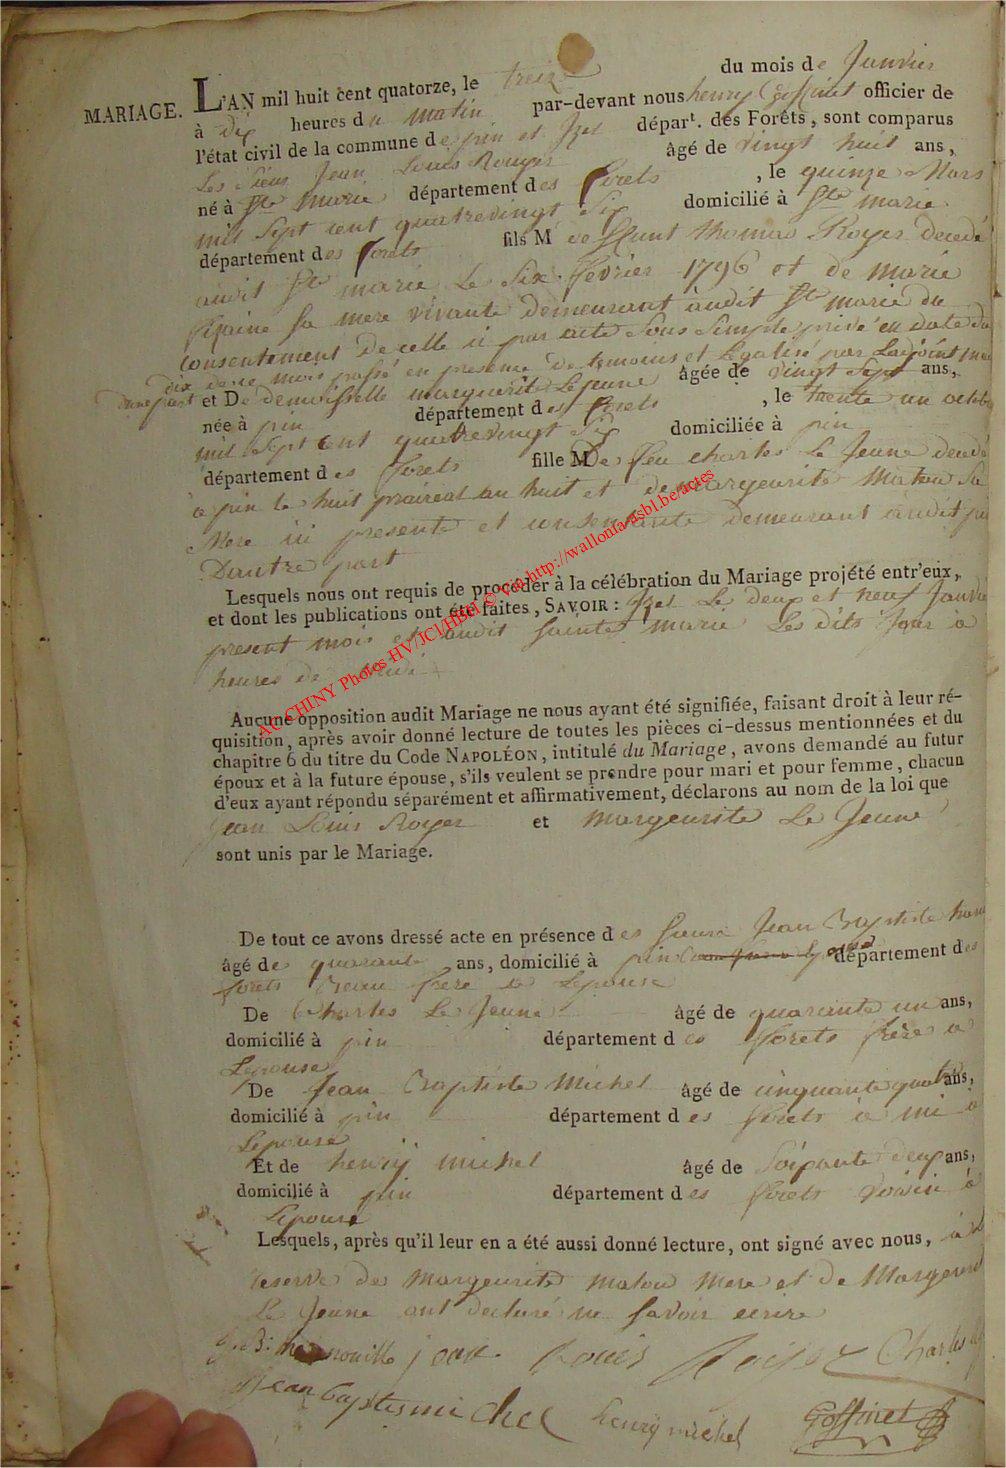 MARIAGE. L'AN mil huit cent quatorze, le treize du mois de Janvier
à dix heures du matin par-devant nous henry Goffinet officier de
l'état civil de la commune de pin et Izel départ. des Forêts, sont comparus
Les Sieur Jean Louis Royer âgé de vingt huit ans,
né à Ste marie département des forets, le quinze Mars
mil Sept cent quatrevingt Six domicilié à Ste marie
département des forets fils M de defunt thomas Royer decedé
audit Ste marie Le Six fevrier 1796 et de marie
sa mere vivante demeurant audit Ste marie du
consentement de celle ci par acte Sous Simple privé en date du
dix de ce mois passé en presence de temoins et Legalisé par Ladjoint
Dune part et De demoisselle marguerite Lejeune âgée de vingt Sept ans,
née à pin département des forets, le trente un octobre
mil Sept cent quatrevingt Six domiciliée à pin
département des forets fille M De feu charles Le Jeune decedé
à pin le huit prairial an huit et de margeurite Maton Sa
Mere ici presente et consentante demeurant audit pin
Dautre part
Lesquels nous ont requis de procéder à la célébration du Mariage projété entr'eux,
et dont les publications ont été faites, SAVOIR : Izel Le deux et neuf Janvier
present mois et audit Sainte marie Les dits Jour à
heures de midi
Aucune opposition audit Mariage ne nous ayant été signifiée, faisant droit à leur ré-
quisition, après avoir donné lecture de toutes les pièces ci-dessus mentionnées et du
chapitre 6 du titre du Code NAPOLÉON, intitulé du Mariage, avons demandé au futur
époux et à la future épouse, s'ils veulent se prendre pour mari et pour femme, chacun
d'eux ayant répondu séparément et affirmativement, déclarons au nom de la loi que
Jean Louis Royer et Margeurite Le Jeune
sont unis par le Mariage.
De tout ce avons dressé acte en présence des Sieurs Jean Baptiste
âgé de quarante ans, domicilié à pin département des
forets Beau frere à Lepouse
De Charles Le Jeune âgé de quarante un ans,
domicilié à pin département des forets frère à
Lepouse
De Jean Baptiste Michel âgé de cinquante quatre ans,
domicilié à pin département des forets a mi à
Lepouse
Et de henrij michel âgé de Soixante deux ans,
domicilié à pin département des forets voisin à
Lepouse
Lesquels, après qu'il leur en a été aussi donné lecture, ont signé avec nous, à la
reserve de Margeurite maton mere et de Margeurite
Le Jeune ont declaré ne Savoir ecrire
J. B. jean Louis Roijer Charles
Jean baptiste michel henrij michel Goffinet
AC CHINY Photos HV/JCl/HBH © via http://wallonia-asbl.be/actes